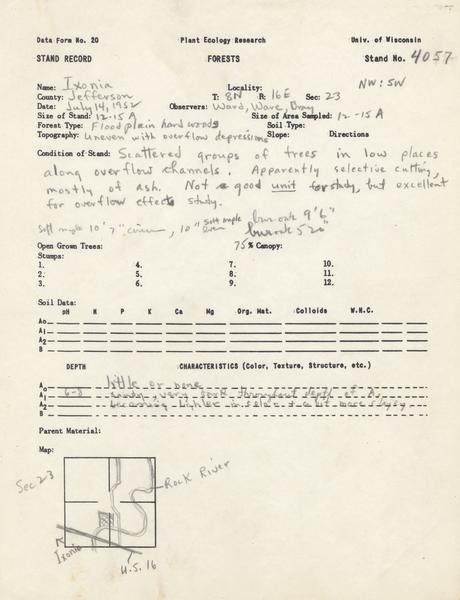 Data Form No. 20 Plant Ecology Research Univ. of Wisconsin
STAND RECORD FORESTS Stand No. 4057
Name: Ixonia Locality: NW: SW
County: Jefferson T: 8N R: 16E Sec: 23
Date: July 14, 1952 Observers: Ward, Ware, Bray
Size of Stand: 12-15A Size of Area Sampled: 12-15A
Forest Type: Floodplain hardwoods Soil Type:
Topography: Uneven with overflow depressions Slope: Directions
Condition of Stand: Scattered groups of trees in low places
along overflow channels. Apparently selective cutting,
mostly of ash. Not a good unit for study, but excellent
for overflow effects study.
soft maple 10' 7" circum, 10" soft maple bur oak 9' 6"
bur oak
Open Grown Trees: 75% Canopy:
Stumps:
1. 4. 7. 10.
2. 5. 8. 11.
3. 6. 9. 12.
Soil Data:
pH N P K Ca Mg Org. Mat. Colloids W.H.C.
A₀
A₁
A₂
B
DEPTH CHARACTERISTICS (Color, Texture, Structure, etc.)
A₀ little or none
A₁ 6-8 sandy, very dark throughout depth of A,
A₂ becoming lighter in color + a bit more clayey
B
Parent Material:
Map:
Sec 23
Rock River
Ixonia
U.S. 16